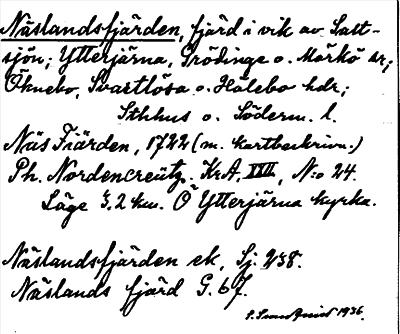 Näslandsfjärden, fjärd i vik av Salt-
sjön; Ytterjärna, Grödinge o. Mörkö sr;
Öknebo, Svartlösa o. Hölebo hdr;
Sthlms o. Söderm. l.
Näs Fiärden, 1722 (m. kartbeskrivn.)
Ph. Nordencreutz. KrA. XVII, N:o 24.
Läge 3,2 km. Ö Ytterjärna kyrka.
Näslandsfjärden ek, Sj. 238.
Näslands fjärd G. 67.
1936.